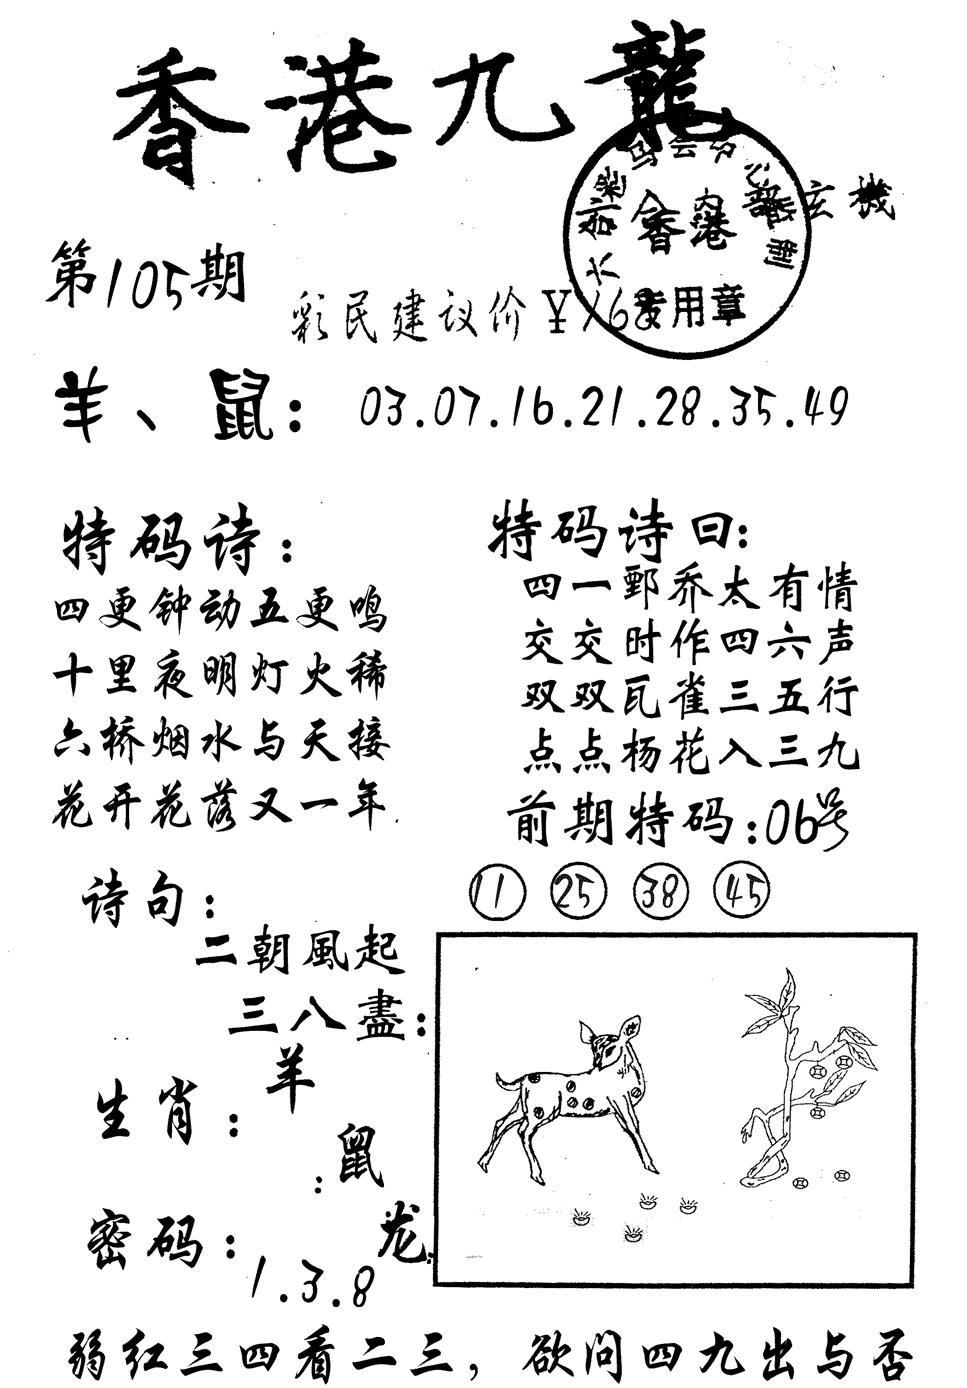 香港九龍
玄機
第105期
香港
彩民建议价¥168
专用章
羊、鼠：03.07.16.21.28.35.49
特码诗：
四更钟动五更鸣
十里夜明灯火稀
六桥烟水与天接
花开花落又一年.
特码诗曰：
四一鄄乔太有情
交交时作四六声
双双瓦雀三五行
点点杨花入三九
前期特码：06号
11 25 38 45
诗句：
二朝風起
三八盡：
生肖：羊
：鼠
龙
密码：
1.3.8
弱红三四看二三，欲问四九出与否